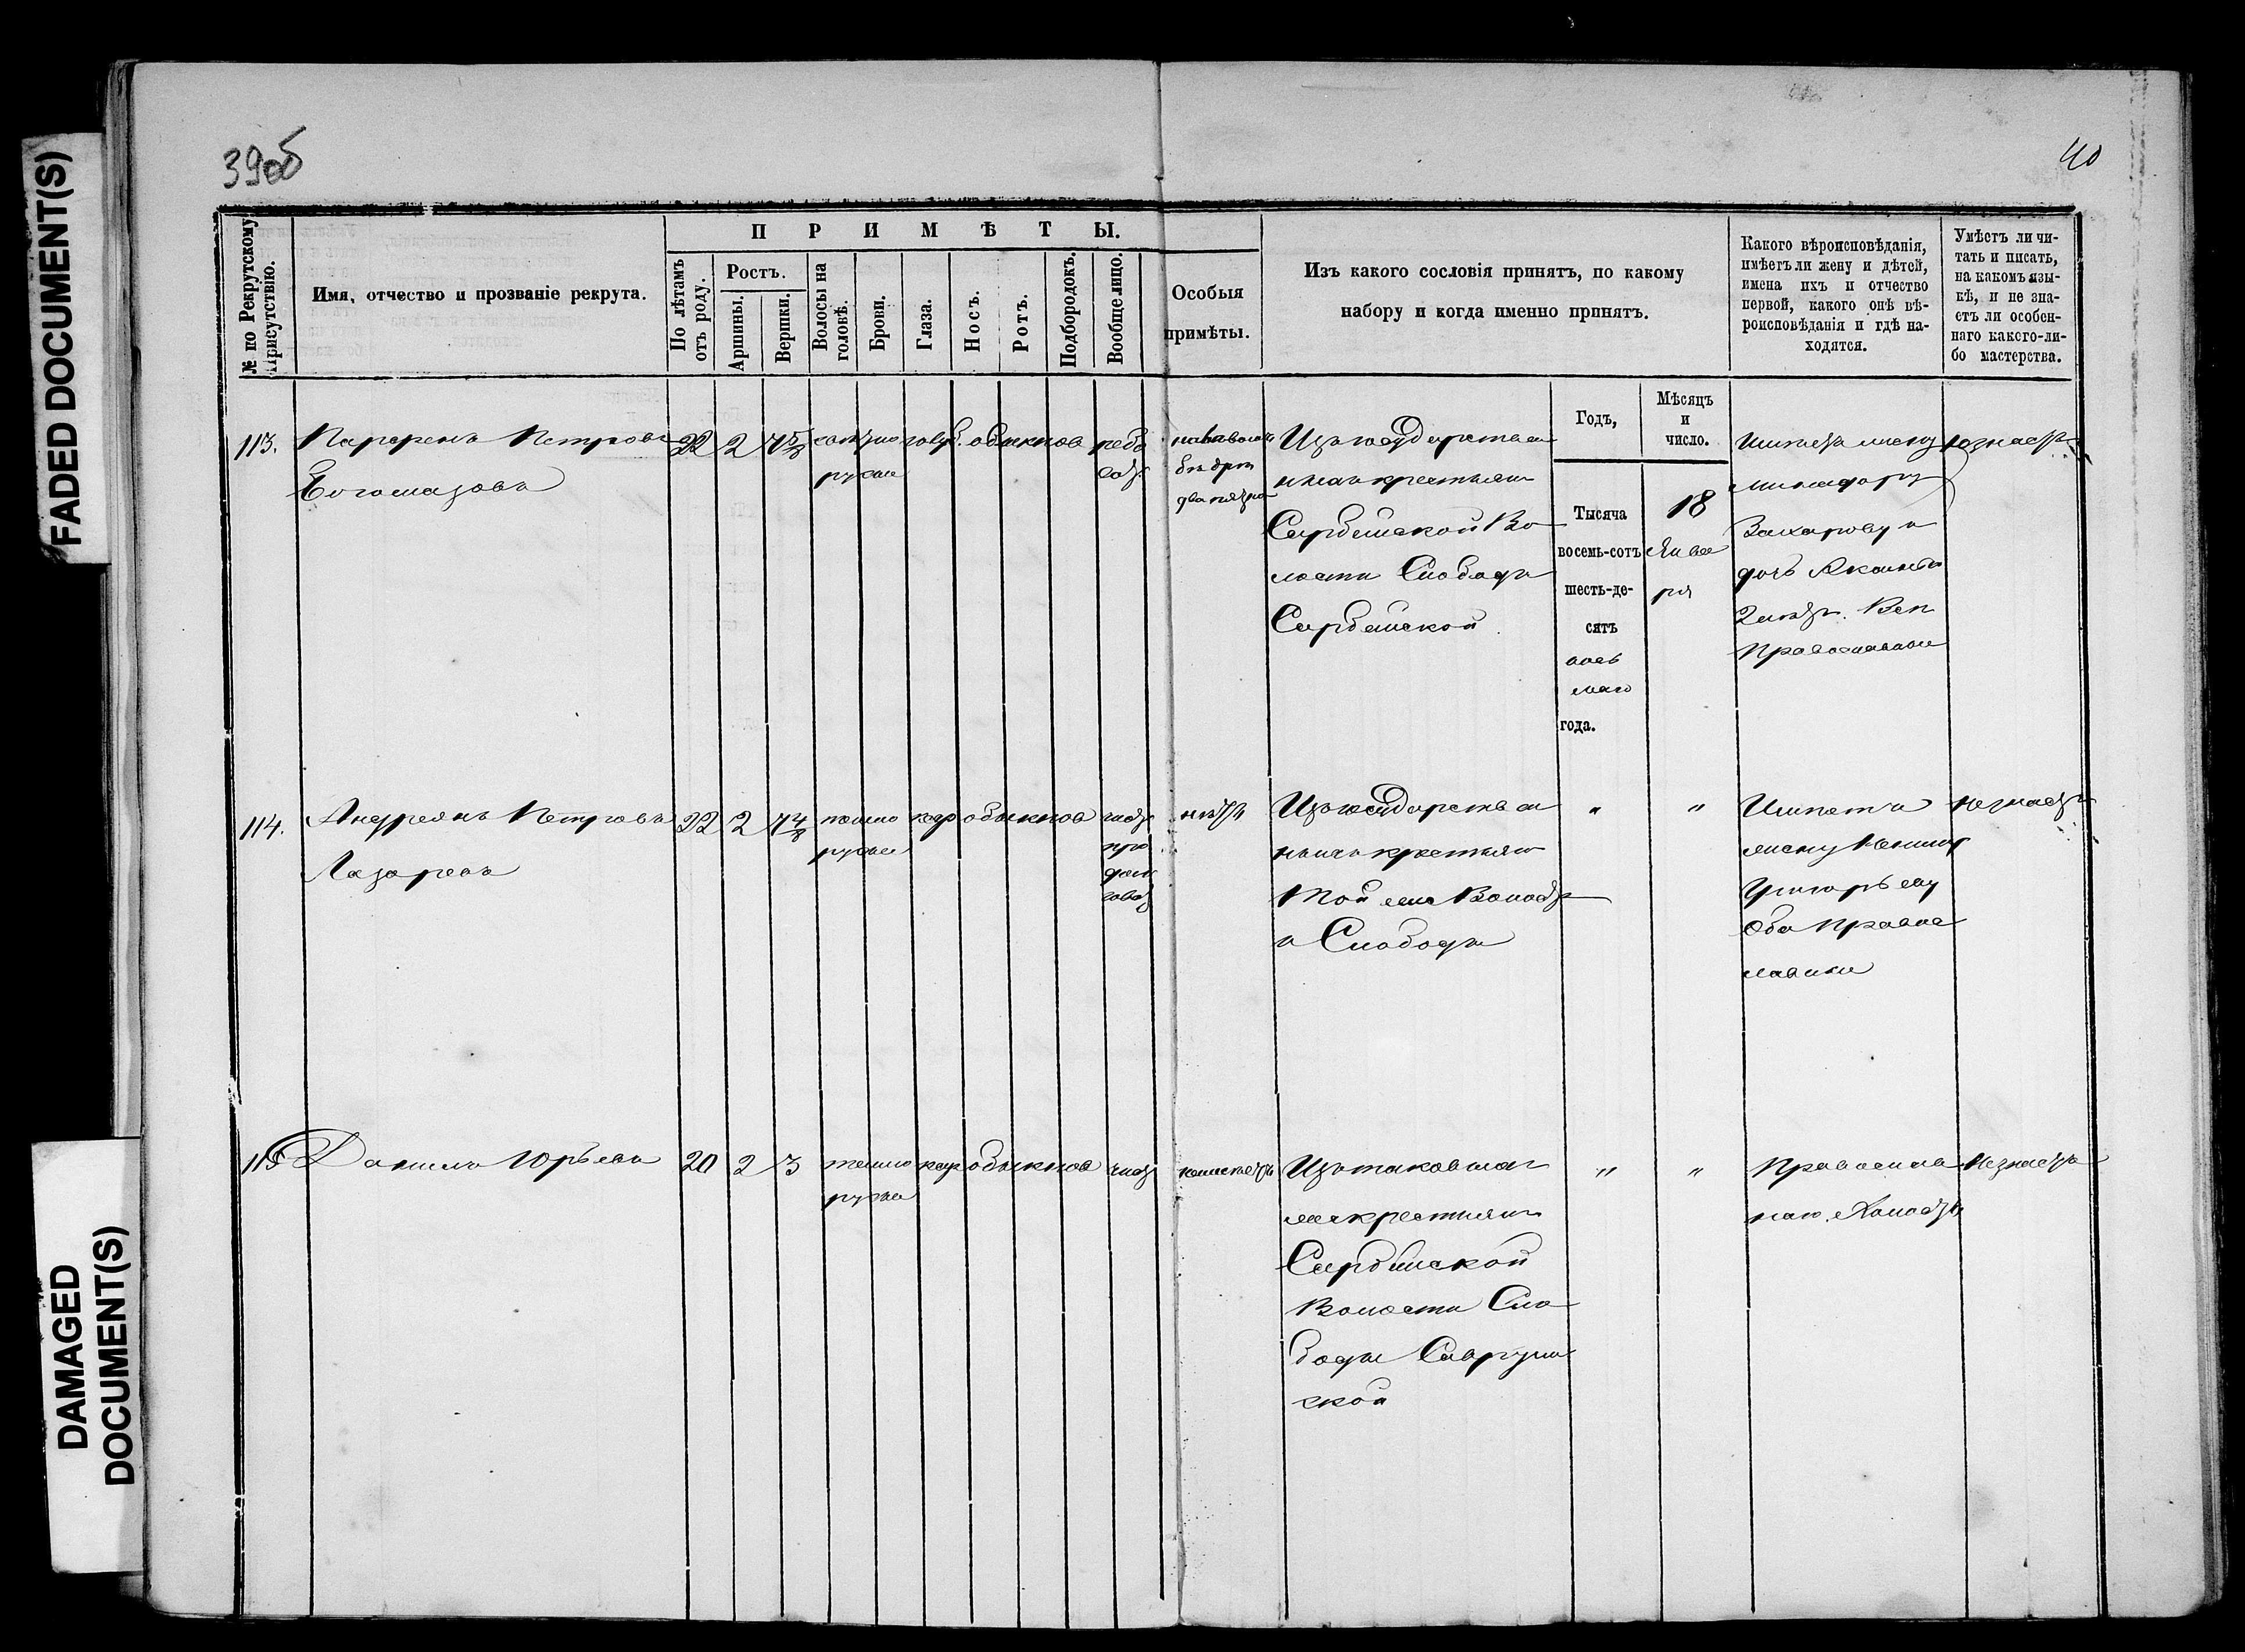 FADED DOCUMENT(S)
DAMAGED
DOCUMENT(S)
39об
40
№ по Рекрутскому
Присутствію.
Имя, отчество и прозваніе рекрута.
ПРИМѢТЫ.
По лѣтамъ
отъ роду.
Ростъ.
Аршины.
Вершки.
Волосы на
головѣ.
Брови.
Глаза.
Носъ.
Ротъ.
Подбородокъ.
Вообще лицо.
Особыя
примѣты.
Изъ какого сословія принятъ, по какому
набору и когда именно принятъ.
Какого вѣроисповѣданія,
имѣетъ ли жену и дѣтей,
имена ихъ и отчество
первой, какого онѣ вѣ-
роисповѣданія и гдѣ на-
ходятся.
Умѣетъ ли чи-
тать и писать,
на какомъ язы-
кѣ, и не зна-
етъ ли особен-
наго какого-ли-
бо мастерства.
Годъ,
Мѣсяцъ
и
число.
113.
Парфенъ Петровъ
Богомазовъ
22
2
русые
голуб.
обыкнов
Изъ государствен
ныхъ крестьянъ
Во
лости Слободы
Тысяча
восемь-сотъ
шесть-де-
сятъ
вось
маго
года.
18
Янва
ря
Имѣетъ жену
Захарову и
дочь
Православные
незнаетъ
114.
Андреянъ Петровъ
Лазаревъ
22
2
темно
русые
кар
обыкнов
нѣтъ
Изъ государствен
ныхъ крестьянъ
той же Волости
и Слободы
"
"
Имѣетъ
жену
Григорьеву
оба правос
лавные
незнаетъ
115
Данила Юрьевъ
20
2
3
темно
русые
кар
обыкнов
чист
Изъ таковыхъ
же крестьянъ
Волости Сло
боды
ской
"
"
Православ
наго. Холостъ
Незнаетъ